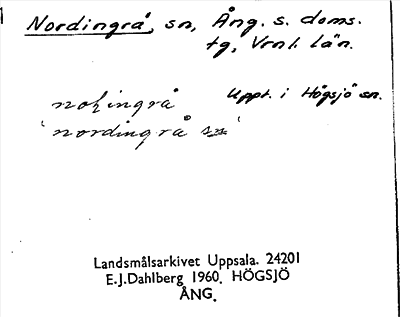 Nordingrå, sn, Ång. s. doms.
tg, Vrnl. län.
Uppt. i Högsjö sn.
'nordingrå sn'
Landsmålsarkivet Uppsala. 24201
E.J.Dahlberg 1960. HÖGSJÖ
ÅNG.